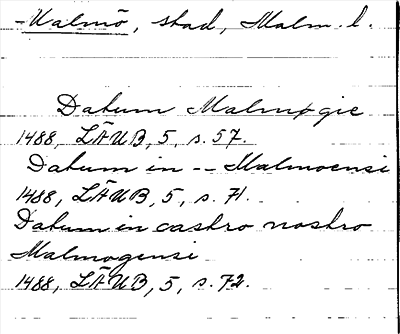 Malmö, stad, Malm. l.
Datum Malmøgie
1488, LÄUB, 5, s. 57.
Datum in -- Malmoensi
1488, LÄUB, 5, s. 71.
Datum in castro nostro
Malmogensi
1488, LÄUB, 5, s. 72.